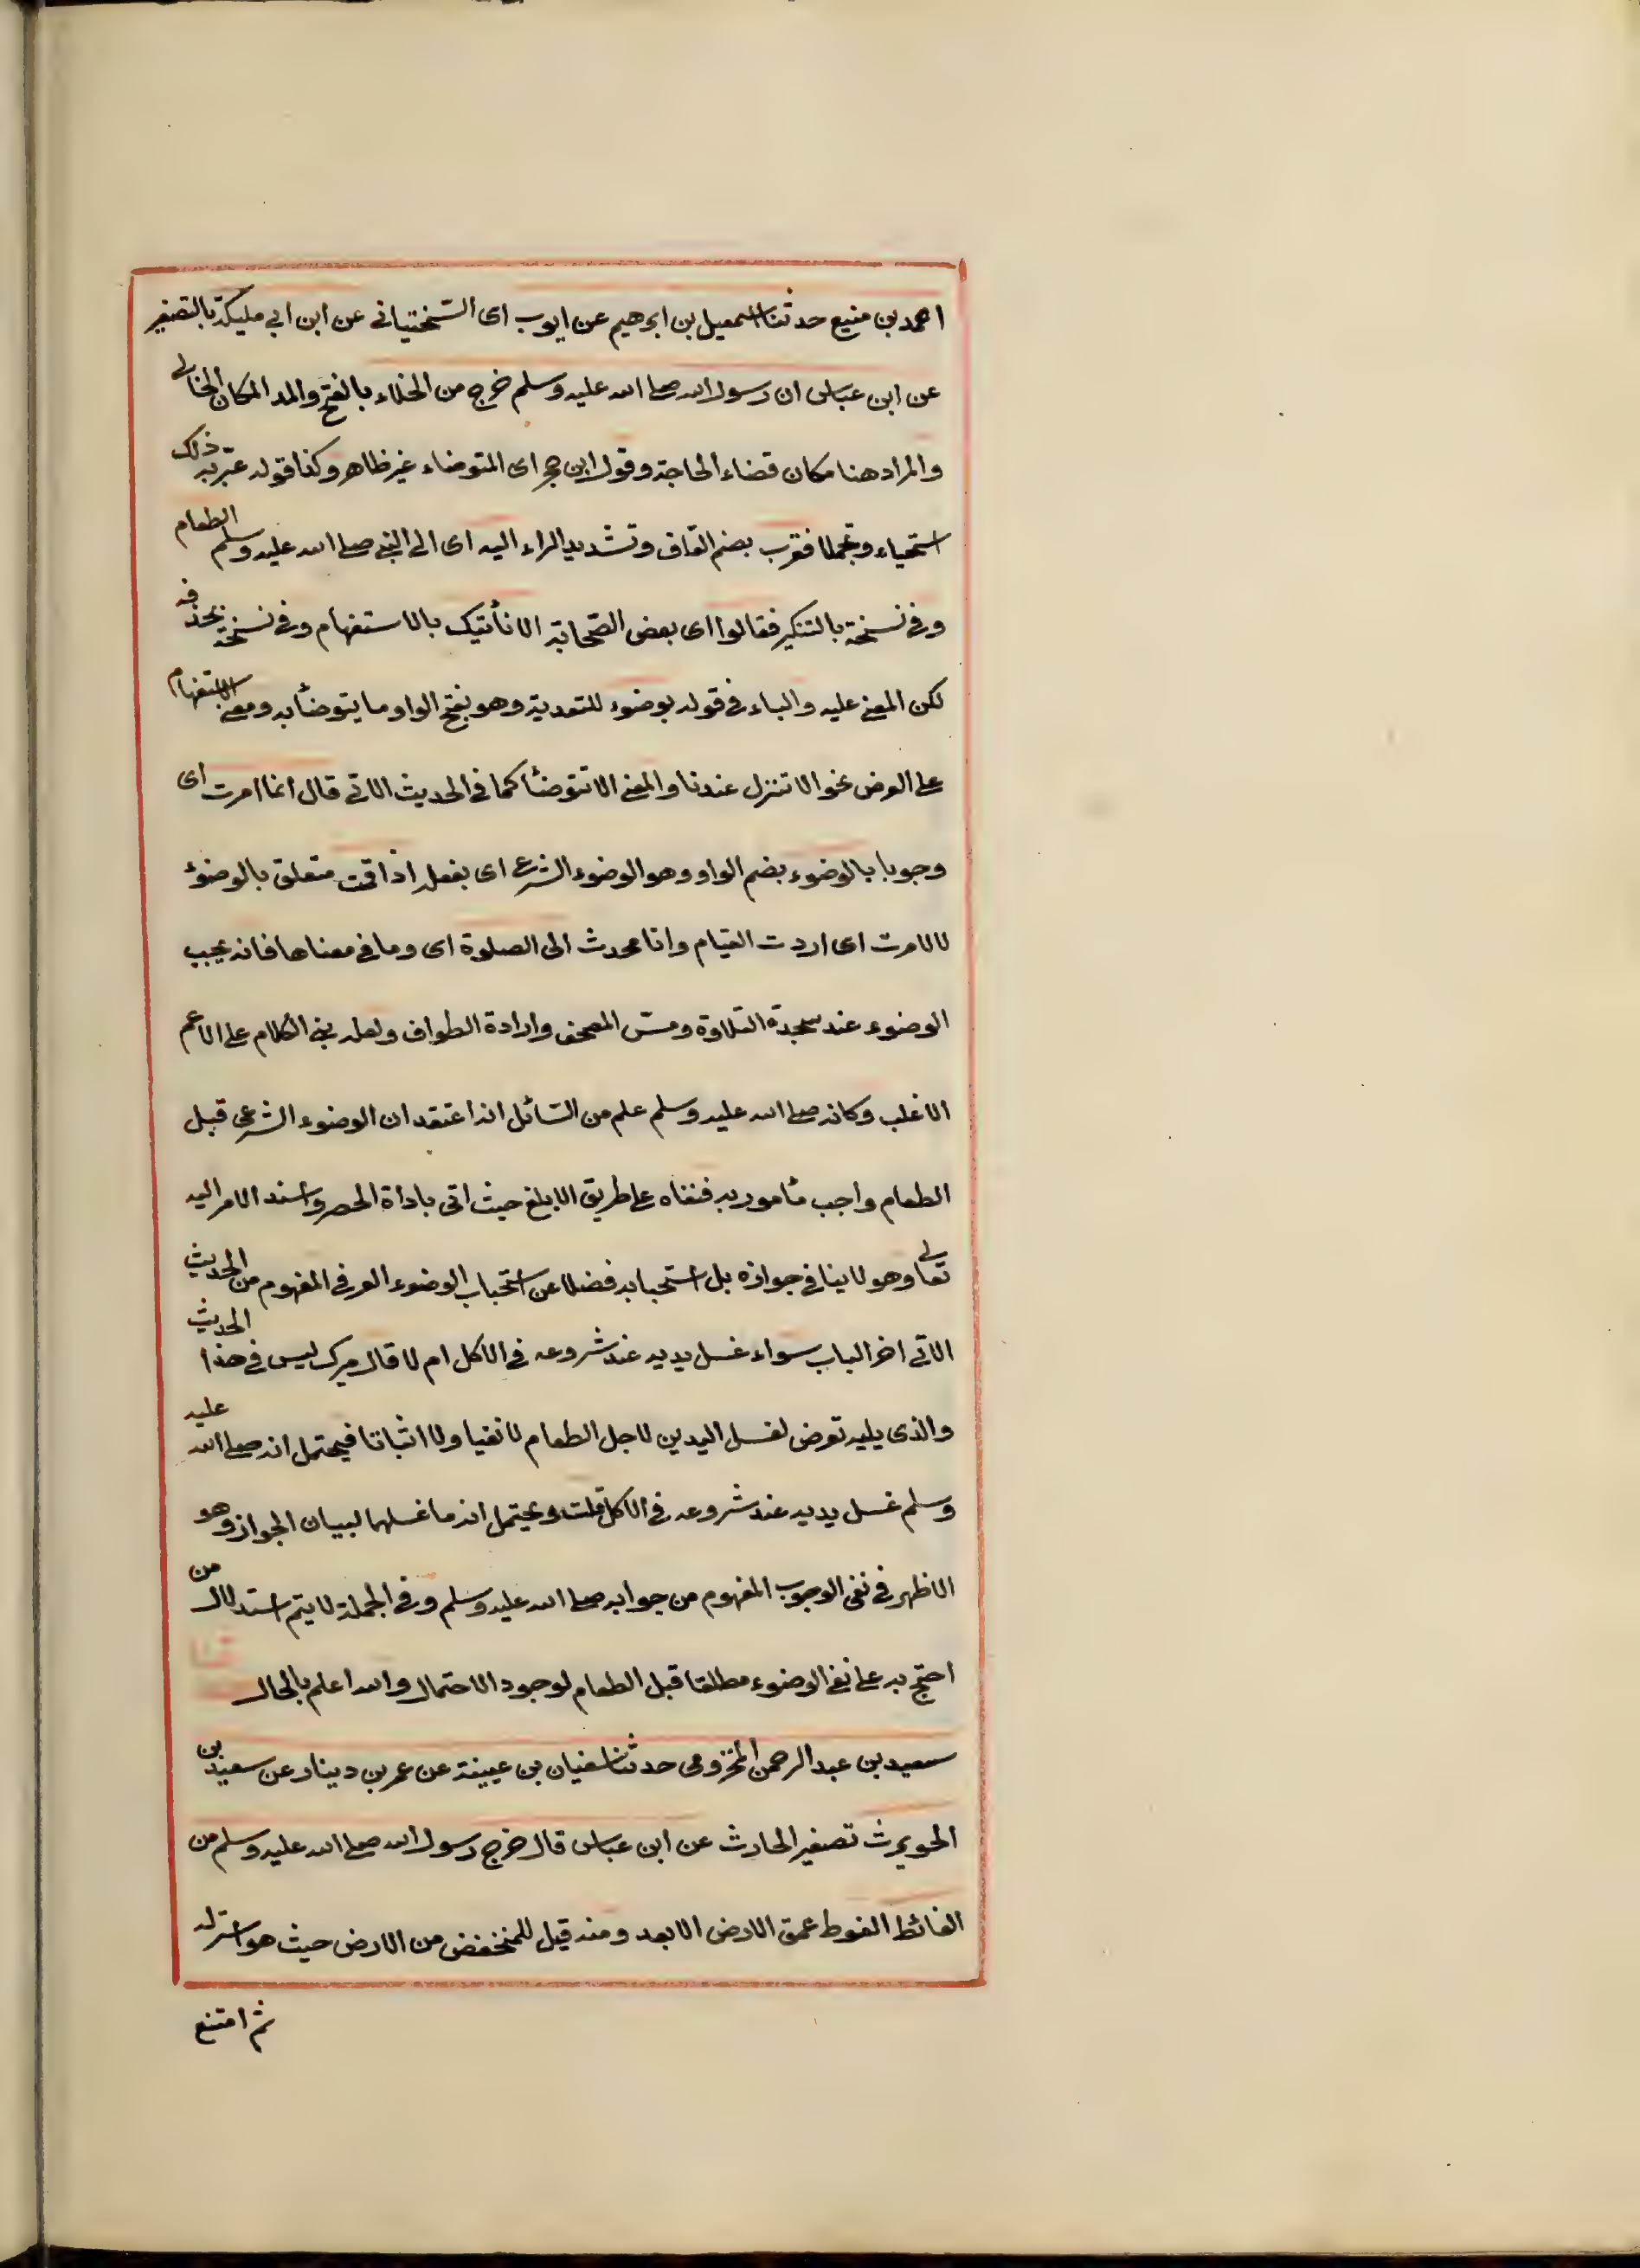 احمد بن منيع حدثنا اسمعيل بن ابرهيم عن ايوب اى السّختيانى عن ابن ابي مليكة بالتصغير
عن ابن عباس ان رسول الله صلى الله عليه وسلم خرج من الخلاء بالفتح والمد المكان الخالى
والمراد هنا مكان قضاء الحاجة وقول ابن حجر اى المتوضاء غير ظاهر وكذا قوله عبّر به ذلك
استحياء وتجملا فقرب بضم القاف وتشديد الراء اليه اى الى النبى صلى الله عليه وسلم الطعام
وفى نسخة بالتنكير فقالوا اى بعض الصّحابة الا نأتيك بالاستفهام وفى نسخة بحذفه
لكن المعنى عليه والباء فى قوله بوضوء للتعدية وهو بفتح الواو ما يتوضأ به ومعنى الاستفهام
على العرض نحو الا تنزل عندنا والمعنى الا تتوضئا كما فى الحديث الاتى قال انما امرت اى
وجوبا بالوضوء بضم الواو وهو الوضوء الشرعى اى بفعله اذا قمت متعلق بالوضوء
لا لامرت اى اردت القيام وانا محدث الى الصلوة اى وما فى معناها فانه يجب
الوضوء عند سجدة التلاوة ومسّ المصحف وارادة الطواف ولعله بنى الكلام على الاعم
الاغلب وكانه صلى الله عليه وسلم علم من السّائل انه اعتقد ان الوضوء الشرعى قبل
الطعام واجب مأمور به فنفاه على طريق الابلغ حيث اتى باداة الحصر واسند الامر اليه
تعالى وهو لا ينافى جوازه بل استحبابه فضلا عن استحباب الوضوء العرفى المفهوم من الحديث
الاتى اخر الباب سواء غسل يديه عند شروعه فى الاكل ام لا قال ميرك ليس فى هذا الحديث
والذى يليه تعرض لغسل اليدين لاجل الطعام لا نفيا ولا اثباتا فيحتمل انه صلى الله عليه
وسلم غسل يديه عند شروعه فى الاكل قلت ويحتمل انه ما غسلهما لبيان الجواز وهو
الاظهر فى نفى الوجوب المفهوم من جوابه صلى الله عليه وسلم وفى الجملة لا يتم استدلال من
احتج به على نفى الوضوء مطلقا قبل الطعام لوجود الاحتمال والله اعلم بالحال
سعيد بن عبد الرحمن المخزومى حدثنا سفيان بن عيينة عن عمر بن دينار عن سعيد بن
الحويرث تصغير الحارث عن ابن عباس قال خرج رسول الله صلى الله عليه وسلم من
الغائط الغوط عمق الارض الابعد ومنه قيل للمنخفض من الارض حيث هو استر له
ثم امتنع